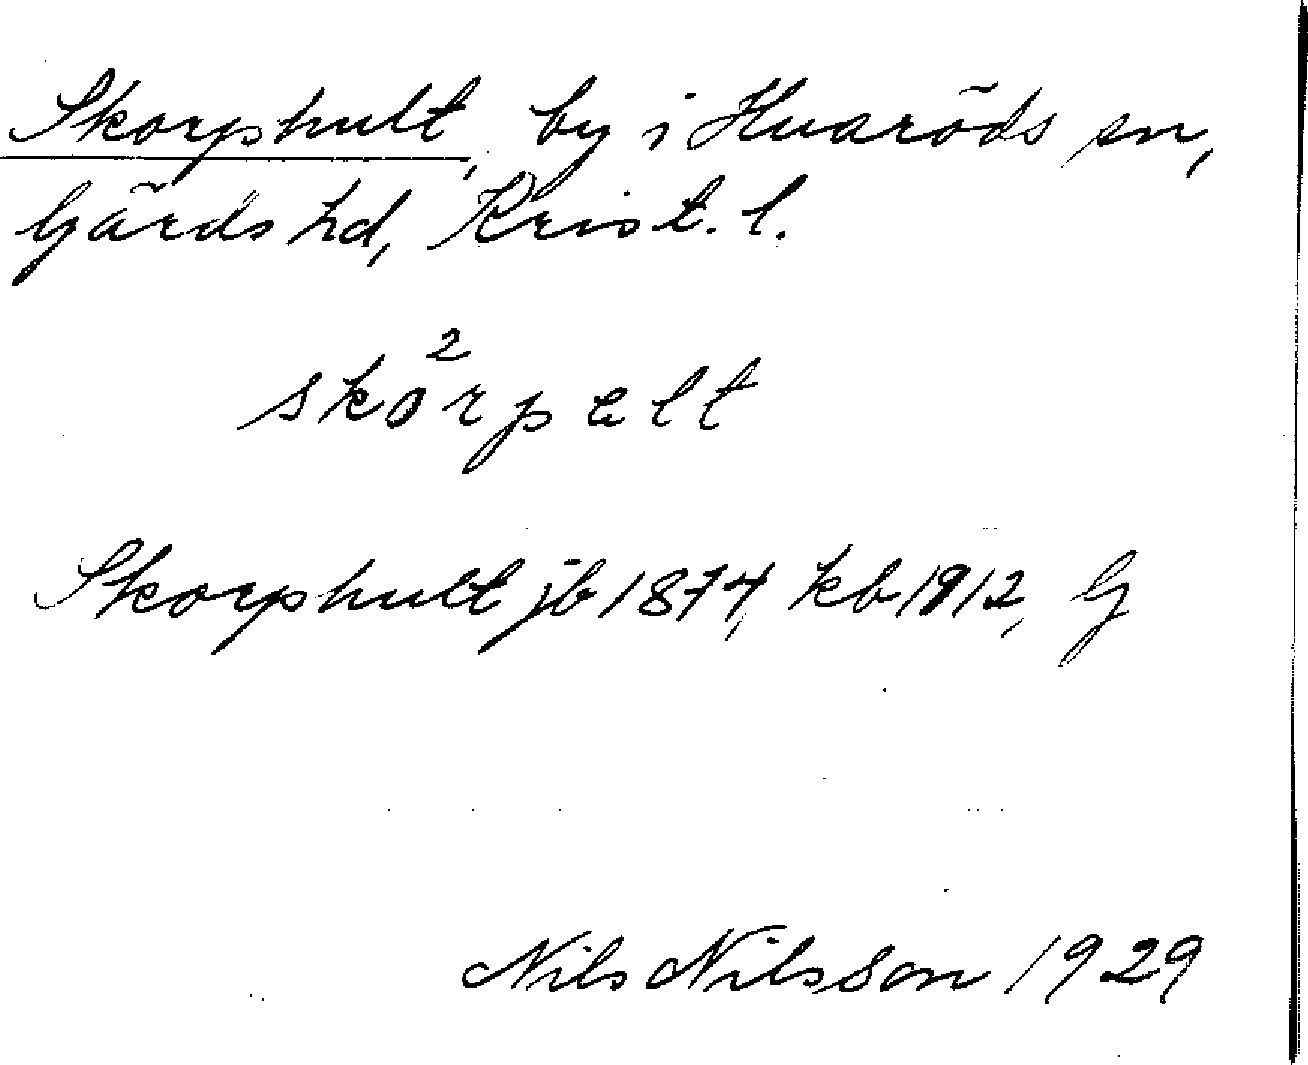 Skorphult, by i Huaröds sn,
Gärds hd, Krist. l.
2
skorpalt
Skorphult jb 1874, kb 1912, G
Nils Nilsson 1929